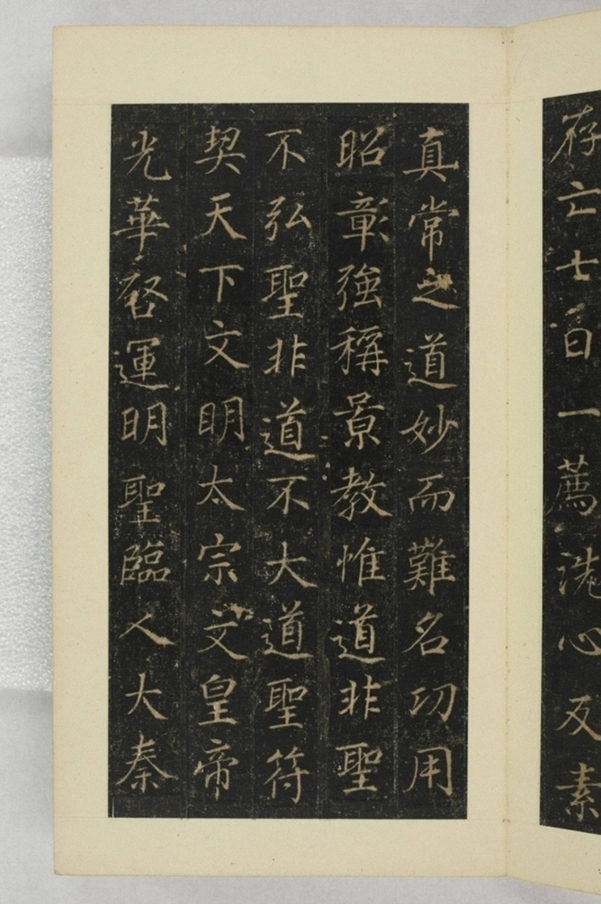 存亡七日一薦洗心反素
真常之道妙而難名功用
昭彰強稱景教惟道非聖
不弘聖非道不大道聖符
契天下文明太宗文皇帝
光華啓運明聖臨人大秦